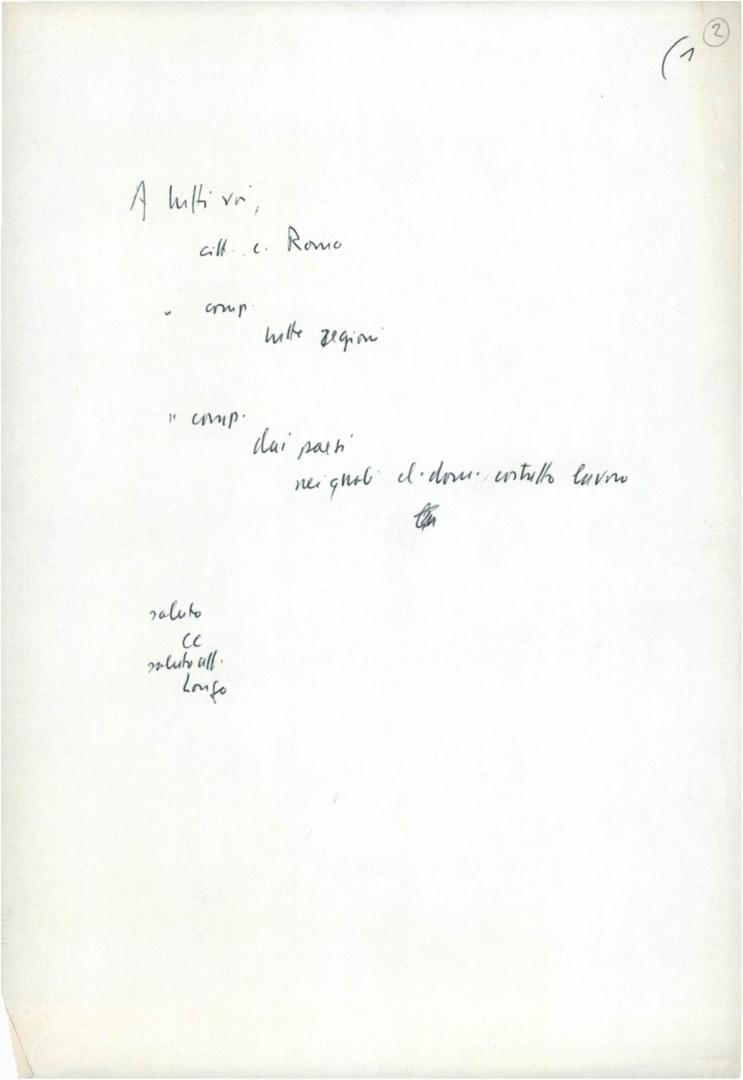 2
(1
A tutti voi,
citt. e. Roma
" comp.
tutte regioni
" comp.
dai paesi
nei quali el. dom. costretto lavoro
saluto
CC
saluto aff.
Longo